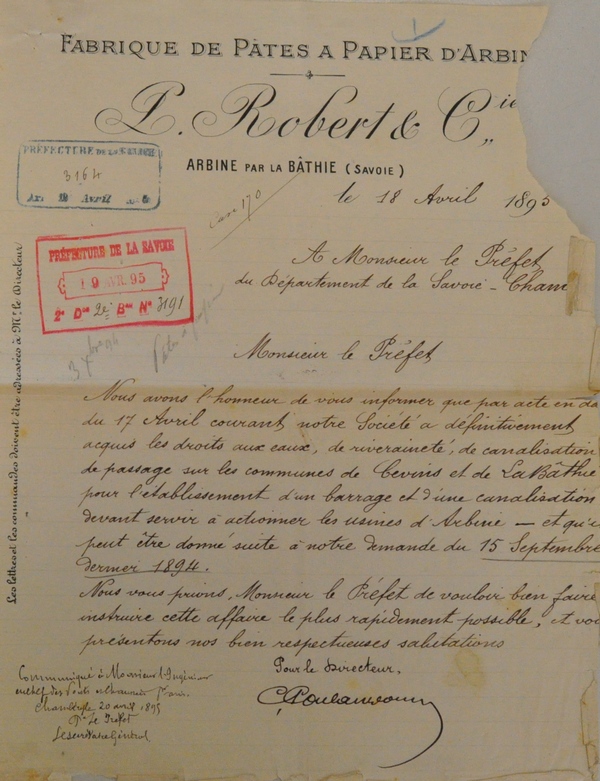 FABRIQUE DE PÂTES A PAPIER D'ARBIN
P. Robert & Cie
ARBINE PAR LA BÂTHIE (SAVOIE)
PRÉFECTURE DE LA SAVOIE
3164
Avril
Case 170
le 18 Avril 1895
PRÉFECTURE DE LA SAVOIE
19 AVR. 95
2e Don 2e Bau No 3191
A Monsieur le Préfet
du Département de la Savoie - Cham
Monsieur le Préfet
Nous avons l'honneur de vous informer que par acte en da
du 17 Avril courant notre Société a définitivement
acquis les droits aux eaux, de riveraineté, de canalisation
de passage sur les communes de Cevins et de La Bâthie
pour l'établissement d'un barrage et d'une canalisation
devant servir à actionner les usines d'Arbine — et qu'i
peut être donné suite à notre demande du 15 Septembre
dernier 1894.
Nous vous prions, Monsieur le Préfet de vouloir bien faire
instruire cette affaire le plus rapidement possible, et vou
présentons nos bien respectueuses salutations
Pour le Directeur.
Communiqué à Monsieur l'Ingénieur
en chef des Ponts et Chaussées
Chambéry le 20 avril 1895
Pr Le Préfet
Le Secrétaire Général
Les lettres et les commandes doivent être adressées à Mr. le Directeur